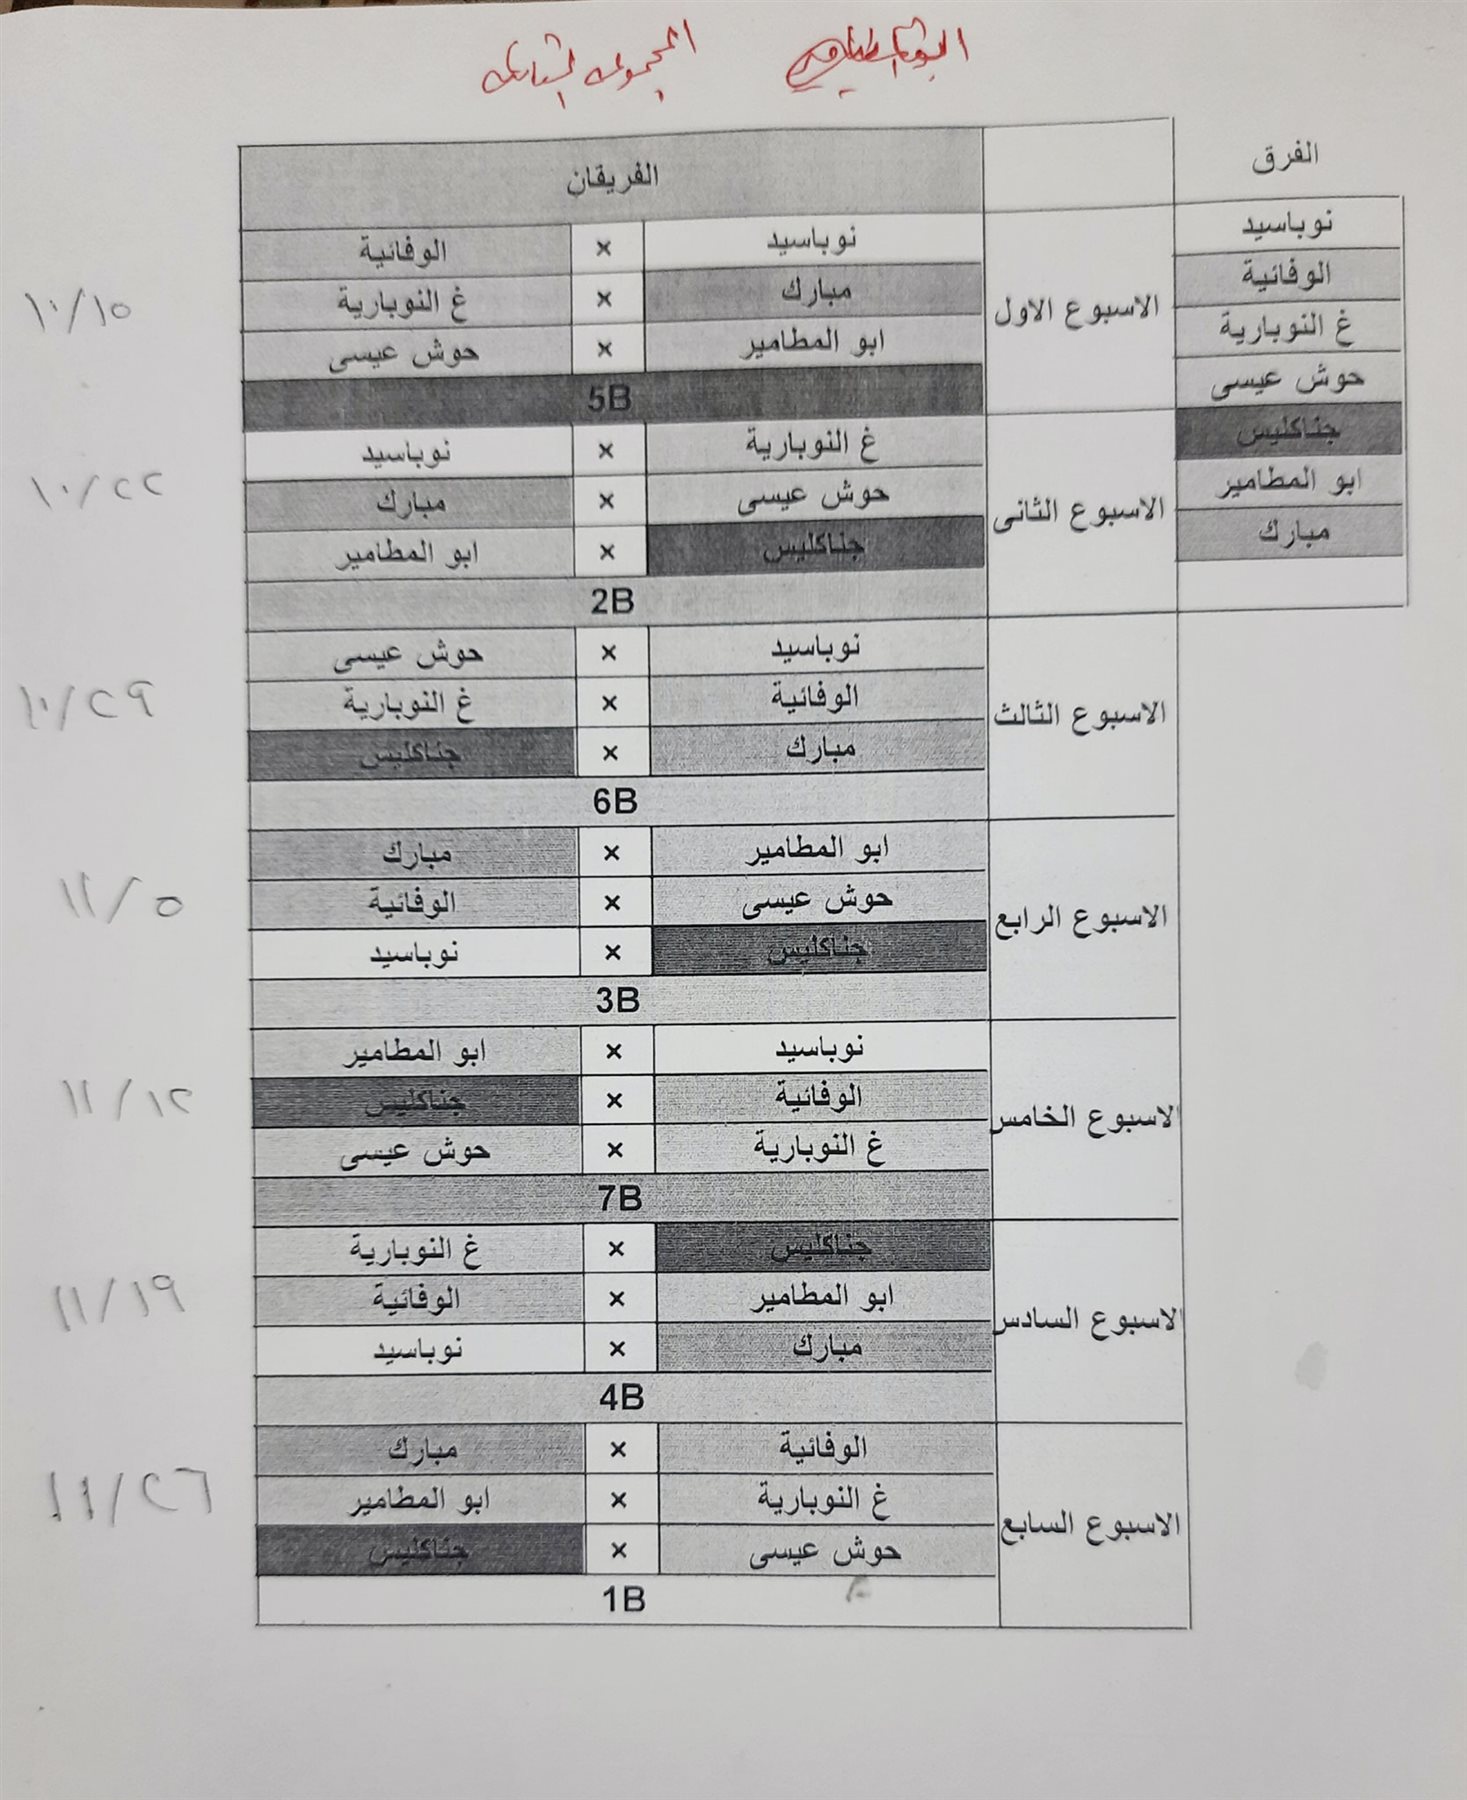 المجموعه
الفرق
نوباسيد
الوفائية
غ النوبارية
حوش عيسى
جناكليس
ابو المطامير
مبارك
الفريقان
الاسبوع الاول
نوباسيد × الوفائية
مبارك × غ النوبارية
ابو المطامير × حوش عيسى
5B
١٠/١٥
الاسبوع الثانى
غ النوبارية × نوباسيد
حوش عيسى × مبارك
جناكليس × ابو المطامير
2B
١٠/٢٢
الاسبوع الثالث
نوباسيد × حوش عيسى
الوفائية × غ النوبارية
مبارك × جناكليس
6B
١٠/٢٩
الاسبوع الرابع
ابو المطامير × مبارك
حوش عيسى × الوفائية
جناكليس × نوباسيد
3B
١١/٥
الاسبوع الخامس
نوباسيد × ابو المطامير
الوفائية × جناكليس
غ النوبارية × حوش عيسى
7B
١١/١٢
الاسبوع السادس
جناكليس × غ النوبارية
ابو المطامير × الوفائية
مبارك × نوباسيد
4B
١١/١٩
الاسبوع السابع
الوفائية × مبارك
غ النوبارية × ابو المطامير
حوش عيسى × جناكليس
1B
١١/٢٦